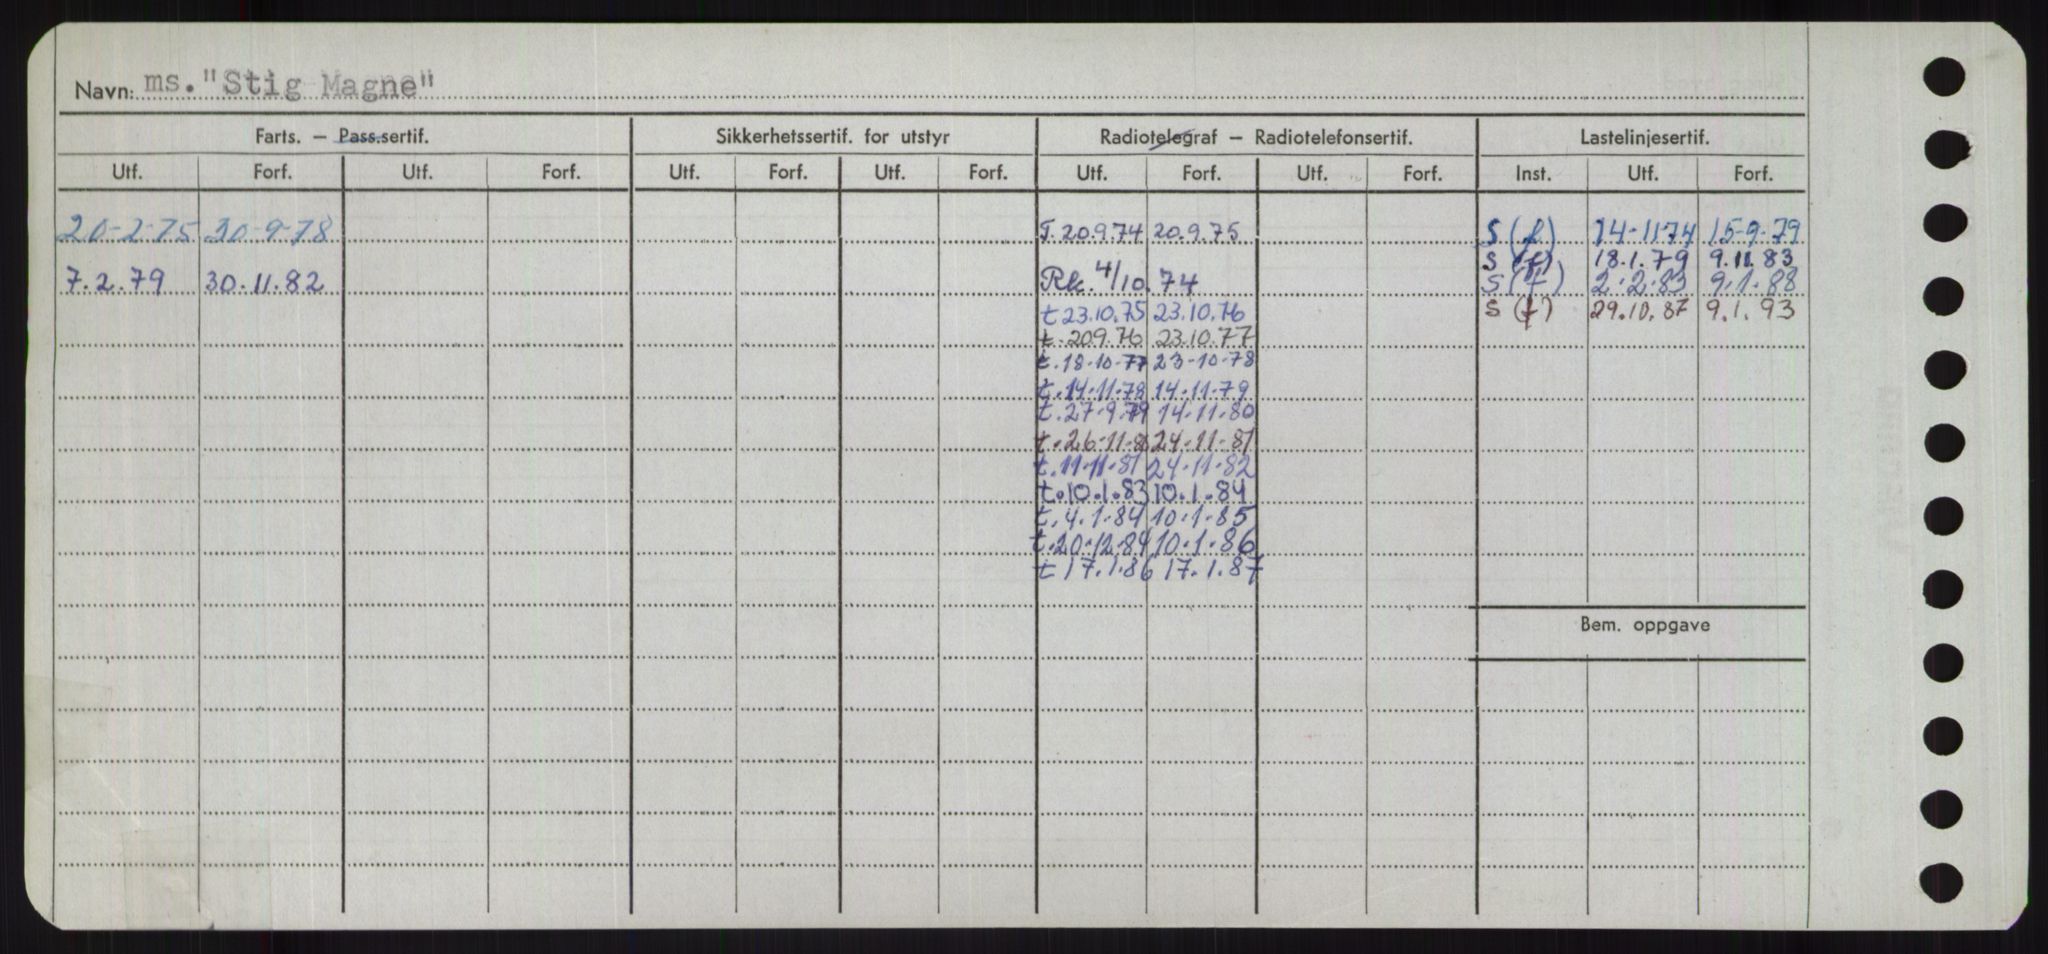 Navn: ms."Stig Magne"
Farts. — Pass.sertif. Sikkerhetssertif. for utstyr Radiotelegraf — Radiotelefonsertif. Lastelinjesertif.
Utf. Forf. Utf. Forf. Utf. Forf. Utf. Forf. Utf. Forf. Utf. Forf. Inst. Utf. Forf.
20-2-75 30-9-78 T.20.9.74 20.9.75 S (f) 14-11 74 15-9-79
S (f) 18.1.79 9.11.83
7.2.79 30.11.82 Rk. 4/10.74 S (f) 2.2.83 9.1.88
t 23.10.75 23.10.76 S (f) 29.10.87 9.1.93
t.20.9.76 23.10.77
t.18-10-77 23-10-78
t.14-11-78 14-11-79
t.27-9-79 14-11-80
t.26-11-80 24-11-81
t.11-11-81 24-11-82
t.10.1.83 10.1.84
t.4.1.84 10.1.85
t.20.12.84 10.1.86
t 17.1.86 17.1.87
Bem. oppgave